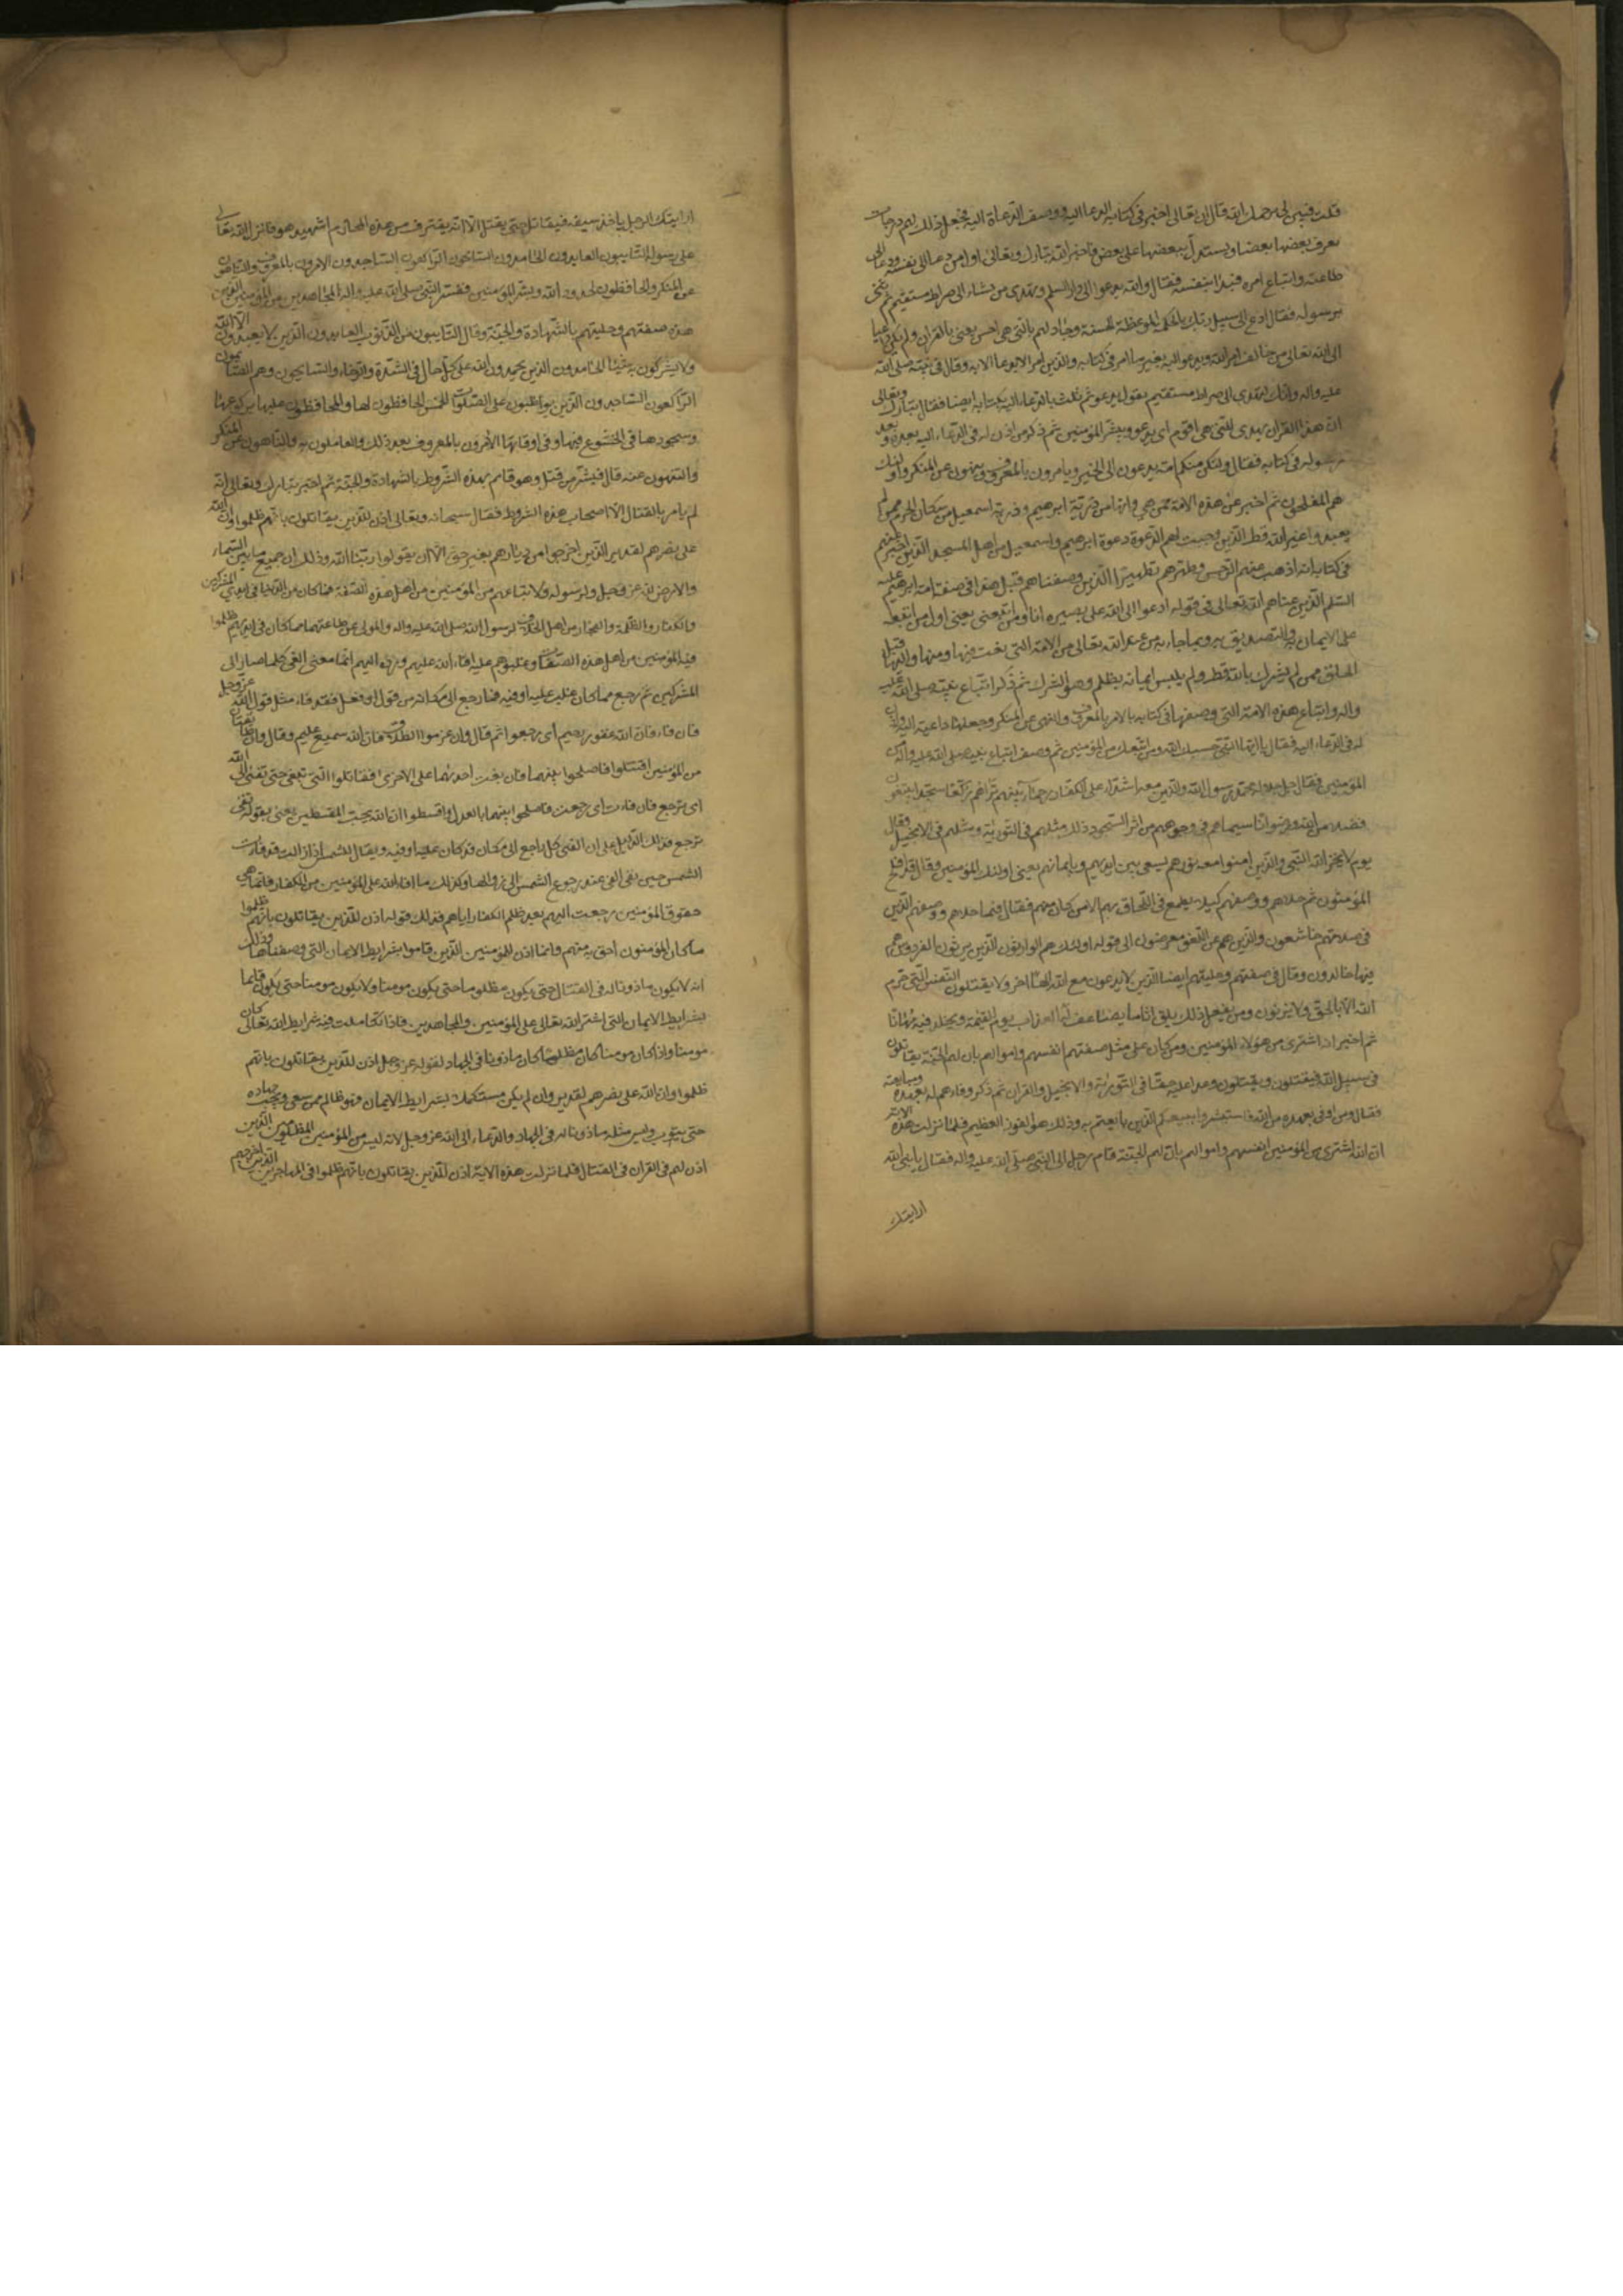 قلت فبين لی يرحمك الله قال ان الله تعالى اخبر فی كتابه الدعا اليه ووصف الدعاة اليه فجعل ذلك لهم درجات
يعرف بعضها بعضا و يستدل ببعضها على بعض فاخبر انه تبارك وتعالى اول من دعا الى نفسه ودعا الى
طاعته واتباع امره فبدا بنفسه فقال والله يدعوا الى دار السلم ويهدی من يشاء الى صراط مستقيم ثم ثنى
برسوله فقال ادع الى سبيل ربك بالحكمة والموعظة الحسنة وجادلهم بالتی هی احسن يعنی بالقران ولم يكن داعيا
الى الله تعالى من خالف امر الله ويدعو اليه بغير ما امر فی كتابه والذين امر الا يدعا الا به وقال فی نبيه صلى الله
عليه واله وانك لتهدی الى صراط مستقيم يقول يدعو ثم ثلث بالدعاء اليه بكتابه ايضا فقال تبارك وتعالى
ان هذا القران يهدی للتی هی اقوم ای يدعو ويبشر المؤمنين ثم ذكر من اذن له فی الدعاء اليه بعده وبعد
رسوله فی كتابه فقال ولتكن منكم امة يدعون الى الخير ويامرون بالمعروف وينهون عن المنكر واولئك
هم المفلحون ثم اخبر عن هذه الامة ممن هی وانها من ذرية ابرهيم وذرية اسمعيل من سكان الحرم ممن لم
يعبدوا غير الله قط الذين وجبت لهم الدعوة دعوة ابرهيم واسمعيل من اهل المسجد الذين اخبر عنهم
فی كتابه انه اذهب عنهم الرجس وطهرهم تطهيرا الذين وصفناهم قبل هذا فی صفة امة ابرهيم عليه
السلم الذين عناهم الله تعالى فی قوله ادعوا الى الله على بصيرة انا ومن اتبعنی يعنی اول من اتبعه
على الايمان به والتصديق به وبما جاء به من عند الله تعالى من الامة التی بعث فيها ومنها واليها قبل
الخلق ممن لم يشرك بالله قط ولم يلبس ايمانه بظلم وهو الشرك ثم ذكر اتباع نبيه صلى الله عليه
واله واتباع هذه الامة التی وصفها فی كتابه بالامر بالمعروف والنهی عن المنكر وجعلها داعية اليه واذن
له فی الدعاء اليه فقال يا ايها النبی حسبك الله ومن اتبعك من المؤمنين ثم وصف اتباع نبيه صلى الله عليه واله من
المؤمنين فقال جل جلاله محمد رسول الله والذين معه اشداء على الكفار رحماء بينهم تراهم ركعا سجدا يبتغون
فضلا من الله ورضوانا سيماهم فی وجوههم من اثر السجود ذلك مثلهم فی التورية ومثلهم فی الانجيل وقال
يوم لا يخزی الله النبی والذين امنوا معه نورهم يسعى بين ايديهم وبايمانهم يعنی اولئك المؤمنين وقال قد افلح
المؤمنون ثم حلاهم ووصفهم كيلا يطمع فی اللحاق بهم الا من كان منهم فقال فيما حلاهم ووصفهم الذين
فی صلاتهم خاشعون والذين هم عن اللغو معرضون الى قوله اولئك هم الوارثون الذين يرثون الفردوس هم
فيها خالدون وقال فی صفتهم وحليتهم ايضا الذين لا يدعون مع الله الها اخر ولا يقتلون النفس التی حرم
الله الا بالحق ولا يزنون ومن يفعل ذلك يلق اثاما يضاعف له العذاب يوم القيمة ويخلد فيه مهانا
ثم اخبر انه اشترى من هؤلاء المؤمنين ومن كان على مثل صفتهم انفسهم واموالهم بان لهم الجنة يقاتلون
فی سبيل الله فيقتلون ويقتلون وعدا عليه حقا فی التورية والانجيل والقران ثم ذكر وفاءهم له بعهده ومبايعته
فقال ومن اوفى بعهده من الله فاستبشروا ببيعكم الذی بايعتم به وذلك هو الفوز العظيم فلما نزلت هذه الاية
ان الله اشترى من المؤمنين انفسهم واموالهم بان لهم الجنة قام رجل الى النبی صلى الله عليه واله فقال يا نبی الله
ارايتك
ارايتك الرجل ياخذ سيفه فيقاتل حتى يقتل الا انه يقترف من هذه المحارم اشهيد هو فانزل الله تعالى
على رسوله التايبون العابدون الحامدون السائحون الراكعون الساجدون الامرون بالمعروف والناهون
عن المنكر والحافظون لحدود الله وبشر المؤمنين ففسر النبی صلى الله عليه واله المجاهدين من المؤمنين الذين
هذه صفتهم وحليتهم بالشهادة والجنة وقال التايبون من الذنوب العابدون الذين لا يعبدون الا الله
ولا يشركون به شيئا الحامدون الذين يحمدون الله على كل حال فی الشدة والرخاء والسايحون وهم الصايمون
الراكعون الساجدون الذين يواظبون على الصلوات الخمس الحافظون لها والمحافظون عليها بركوعها
وسجودها فی الخشوع فيها وفی اوقاتها الامرون بالمعروف بعد ذلك والعاملون به والناهون عن المنكر
والمنتهون عنه قال فبشر من قتل وهو قايم بهذه الشروط بالشهادة والجنة ثم اخبر تبارك وتعالى انه
لم يامر بالقتال الا اصحاب هذه الشروط فقال سبحانه وتعالى اذن للذين يقاتلون بانهم ظلموا وان الله
على نصرهم لقدير الذين اخرجوا من ديارهم بغير حق الا ان يقولوا ربنا الله وذلك ان جميع ما بين السماء
والارض لله عز وجل ولرسوله ولاتباعهم من المؤمنين من اهل هذه الصفة فما كان من الدنيا فی ايدی المشركين
والكفار والظلمة والفجار من اهل الخلاف لرسول الله صلى الله عليه واله والمولى عن طاعتهما مما كان فی ايديهم ظلموا
فيه المؤمنين من اهل هذه الصفات وغلبوهم عليه افاء الله عليهم ورده اليهم انما معنى الفی كلما صار الى
المشركين ثم رجع مما كان غلب عليه او فيه فما رجع الى مكانه من قول او فعل فقد فاء مثل قول الله عز وجل
فان فاءوا فان الله غفور رحيم ای رجعوا ثم قال وان عزموا الطلاق فان الله سميع عليم وقال وان طايفتان
من المؤمنين اقتتلوا فاصلحوا بينهما فان بغت احديهما على الاخرى فقاتلوا التی تبغی حتى تفئ الى امر الله
ای ترجع فان فاءت ای رجعت فاصلحوا بينهما بالعدل واقسطوا ان الله يحب المقسطين يعنی بقوله تفئ
ترجع فذلك الدليل على ان الفئ كل راجع الى مكان قد كان عليه او فيه ويقال للشمس اذا زالت قد فاءت
الشمس حين يفی الفی عند رجوع الشمس الى زوالها وكذلك ما افاء الله على المؤمنين من الكفار فانما هی
حقوق المؤمنين رجعت اليهم بعد ظلم الكفار اياهم فذلك قوله اذن للذين يقاتلون بانهم ظلموا
ما كان المؤمنون احق به منهم وانما اذن للمؤمنين الذين قاموا بشرايط الايمان التی وصفناها وذلك
انه لا يكون ماذونا له فی القتال حتى يكون مظلوما ولا يكون مظلوما حتى يكون مومنا ولا يكون مومنا حتى يكون قايما
بشرايط الايمان التی اشترط الله تعالى على المؤمنين والمجاهدين فاذا تكاملت فيه شرايط الله تعالى كان
مومنا واذا كان مومنا كان مظلوما واذا كان مظلوما كان ماذونا فی الجهاد لقوله عز وجل اذن للذين يقاتلون بانهم
ظلموا وان الله على نصرهم لقدير وان لم يكن مستكملا بشرايط الايمان فهو ظالم ممن سعى ويجب جهاده
حتى يتوب وليس مثله ماذونا له فی الجهاد والدعاء الى الله عز وجل لانه ليس من المؤمنين المظلومين الذين
اذن لهم فی القران فی القتال فلما نزلت هذه الاية اذن للذين يقاتلون بانهم ظلموا فی المهاجرين الذين اخرجهم